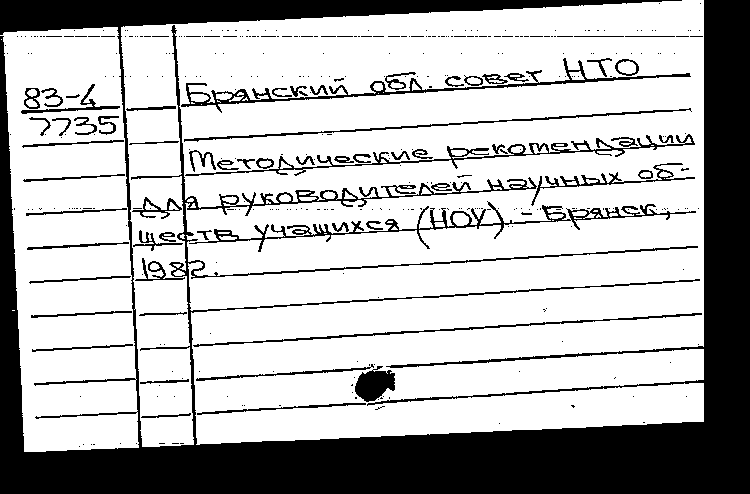 83-4
7735
Брянский обл. совет НТО
Методические рекомендации
для руководителей научных об-
ществ учащихся (НОУ). - Брянск,
1982.